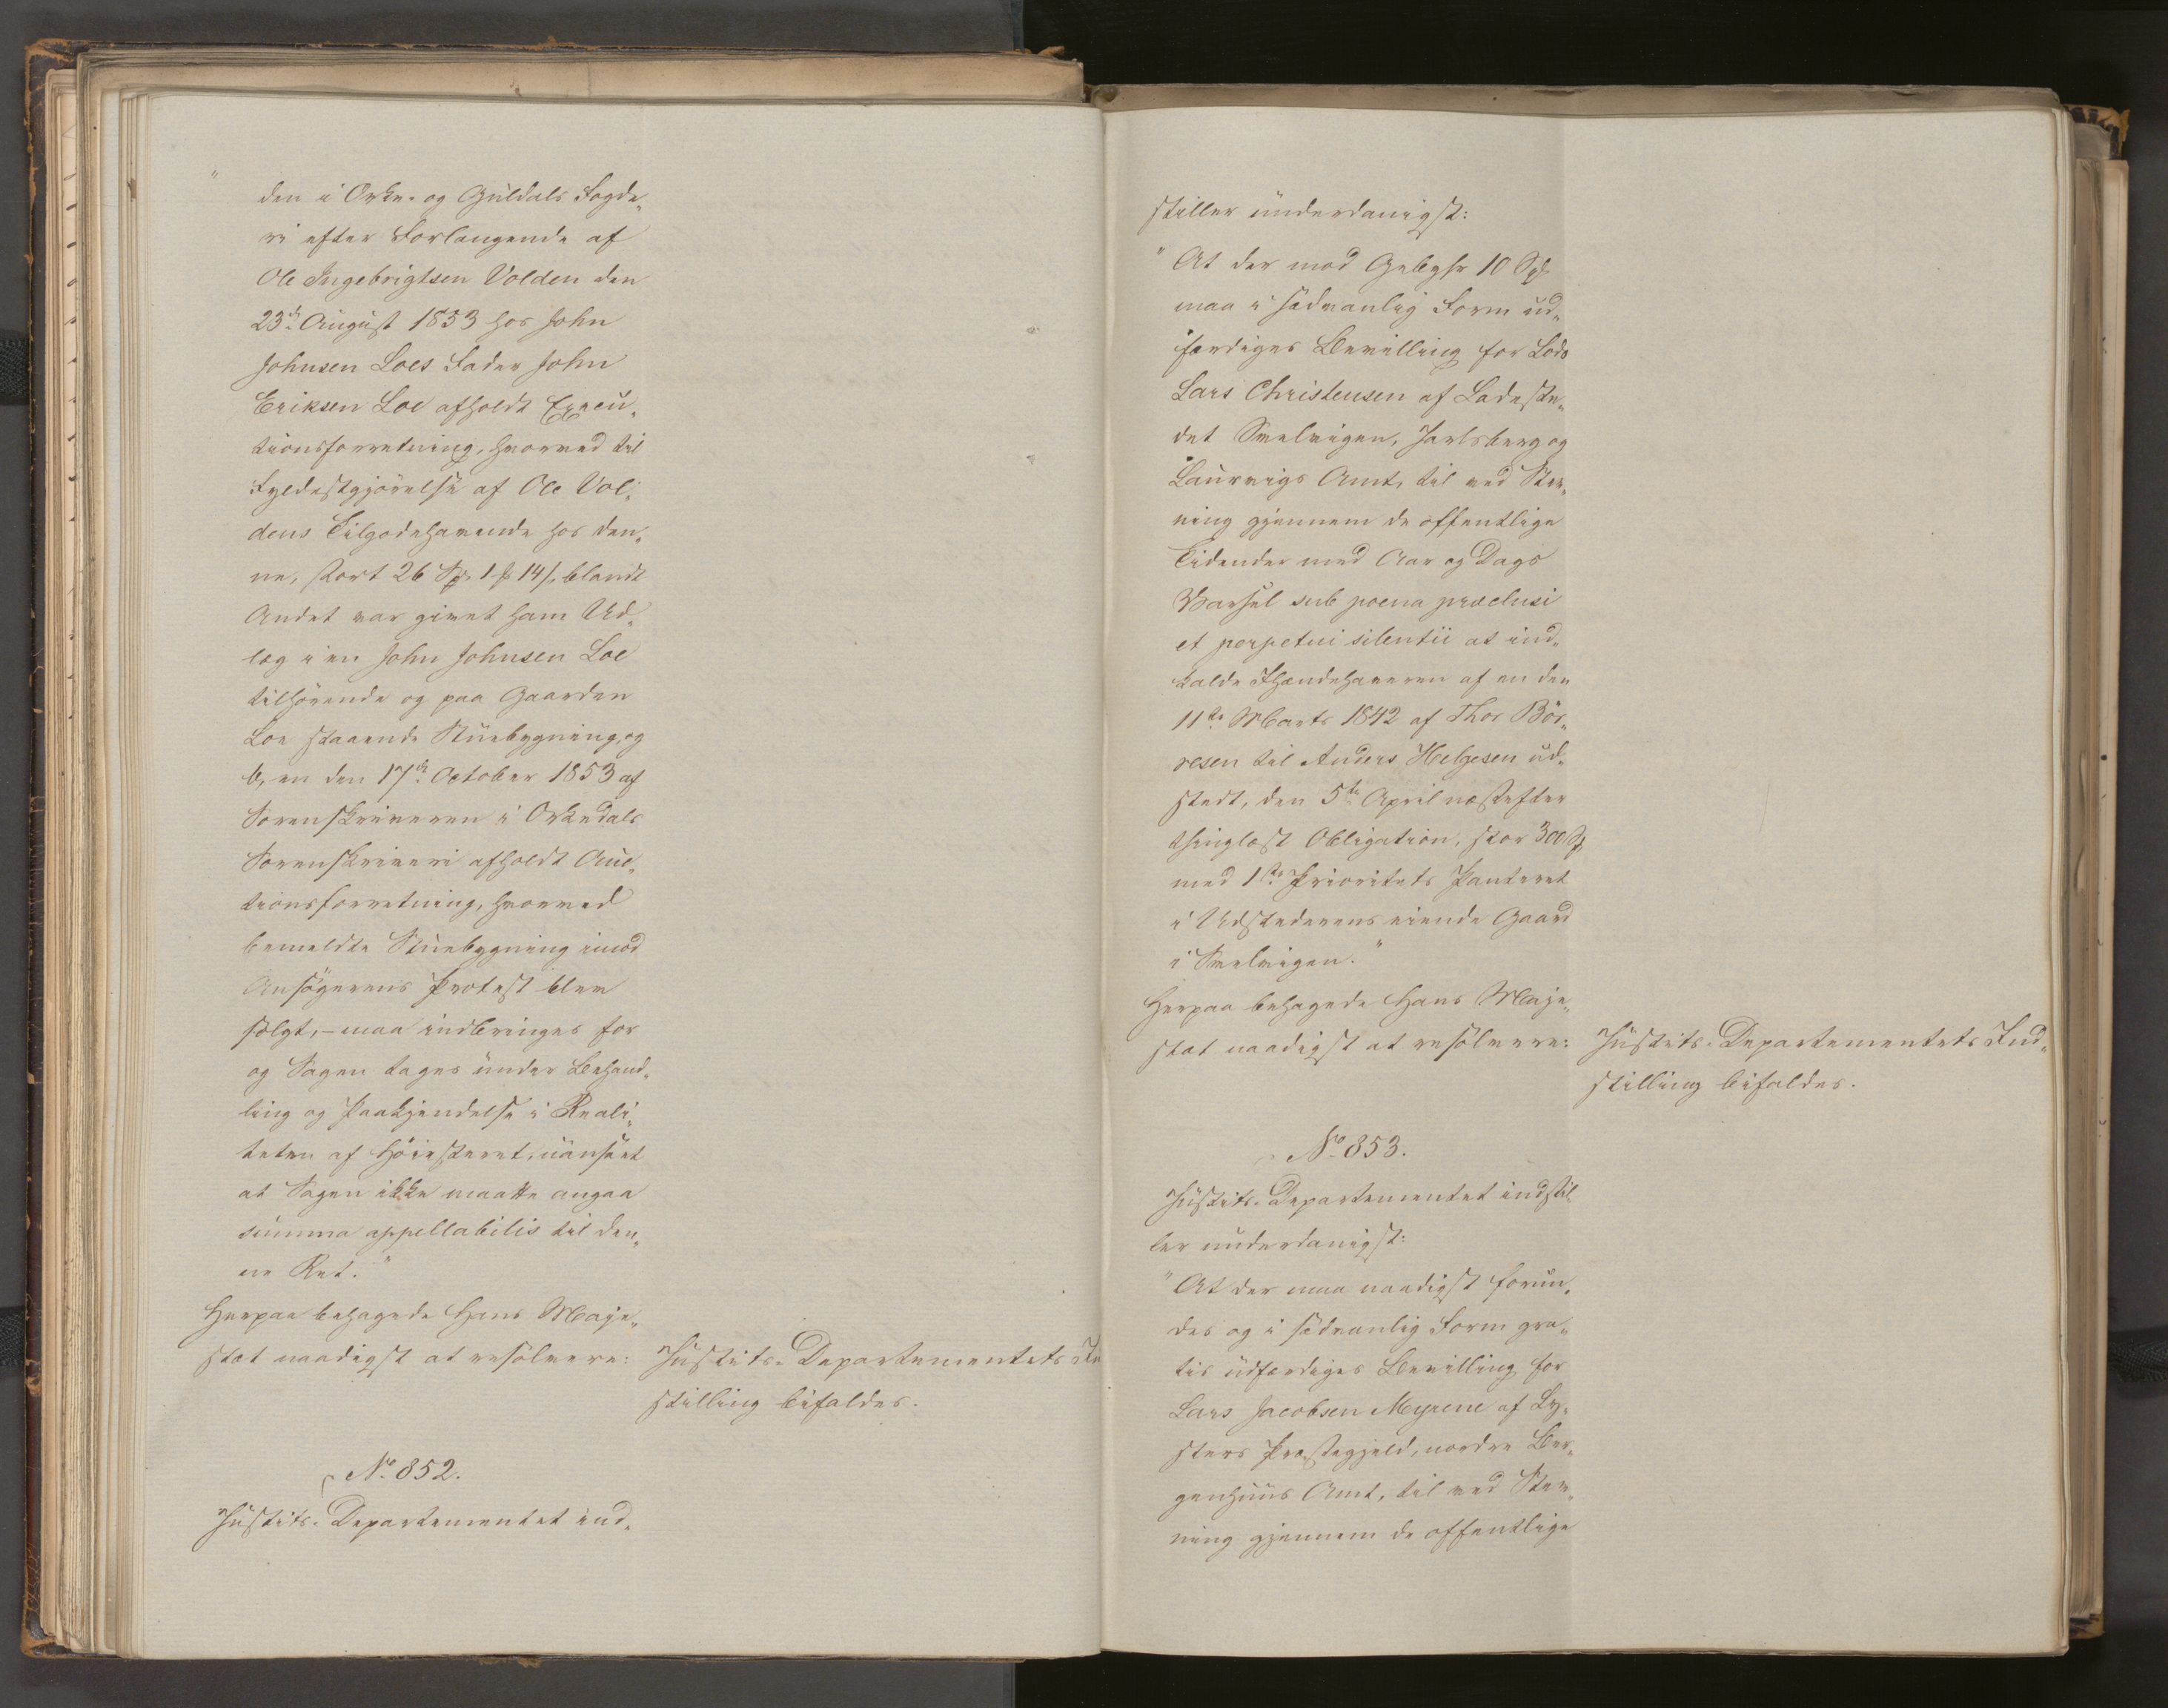 "
den i Orke- og Guldals Fogde„
ri efter Forlangende af
Ole Ingebrigtsen Volden den
23de August 1853 hos John
Johnsen Loes Fader John
Eriksen Loe afholdt Execu„
tionsforretning, hvorved til
Fyldestgjörelse af Ole Vol„
dens Tilgodehavende hos den„
ne, stort 26 Spd. 1 ƒ 14 ß, blandt
Andet var givet ham Ud„
læg i en John Johnsen Loe
tilhörende og paa Gaarden
Loe staaende Stuebygning, og
b, en den 17de October 1853 af
Sorenskriveren i Orkedals
Sorenskriveri afholdt Auc„
tionsforretning, hvorved
bemeldte Stuebygning imod
Ansögerens Protest blev
solgt, – maa indbringes for
og Sagen tages under Behand„
ling og Paakjendelse i Reali„
teten af Höiesteret, uanseet
at Sagen ikke maatte angaa
summa appellabilis til den„
ne Ret."
Herpaa behagede Hans Maje„
stæt naadigst at resolvere:
Justits-Departementets In
stilling bifaldes.
No 852.
Justits-Departementet ind„
stiller underdanigst:
"At der mod Gebyhr 10 Spd.
maa i sædvanlig Form ud„
færdiges Bevilling for Lods
Lars Christensen af Ladeste„
det Svelvigen, Jarlsberg og
Laurvigs Amt, til ved Stev„
ning gjennem de offentlige
Tidender med Aar og Dags
Varsel sub poena præclusi
et perpetui silentii at ind„
kalde Ihændehaveren af en den
11te Marts 1842 af Thor Bör„
resen til Anders Helgesen ud„
stedt, den 5te April næstefter
thinglæst Obligation, stor 300 Spd
med 1ste Prioritets Panteret
i Udstederens eiende Gaard
i Svelvigen."
Herpaa behagede Hans Maje„
stæt naadigst at resolvere:
Justits-Departementets Ind„
stilling bifaldes.
No 853.
Justits-Departementet indstil„
ler underdanigst:
"At der maa naadigst forun„
des og i sædvanlig Form gra„
tis udfærdiges Bevilling for
Lars Jacobsen Meyrene af Ly„
sters Præstegjeld, nordre Ber„
genhuus Amt, til ved Stev„
ning gjennem de offentlige